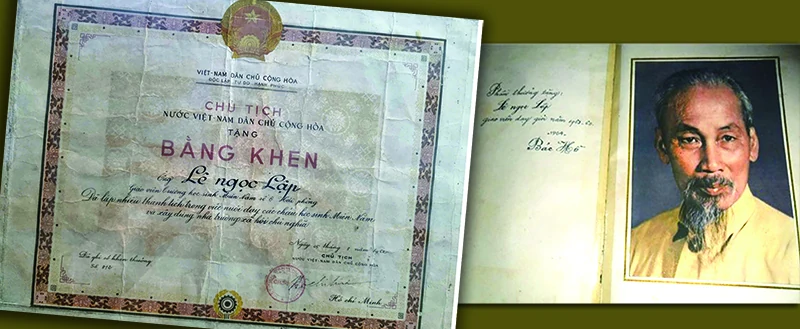 VIỆT-NAM DÂN CHỦ CỘNG HÒA
ĐỘC LẬP TỰ DO HẠNH PHÚC
CHỦ TỊCH
NƯỚC VIỆT-NAM DÂN CHỦ CỘNG HÒA
TẶNG
BẰNG KHEN
Ông Lê ngọc Lập
Giáo viên trường học sinh Miền Nam số 6 Hải phòng
Đã lập nhiều thành tích trong việc nuôi dạy các cháu học sinh Miền Nam
và xây dựng nhà trường xã hội chủ nghĩa
Ngày tháng năm
CHỦ TỊCH
NƯỚC VIỆT-NAM DÂN CHỦ CỘNG HÒA
Đã ghi sổ khen thưởng
Số
Hồ chí Minh
Phần thưởng tặng:
Lê ngọc Lập
giáo viên dạy giỏi năm
Bác Hồ